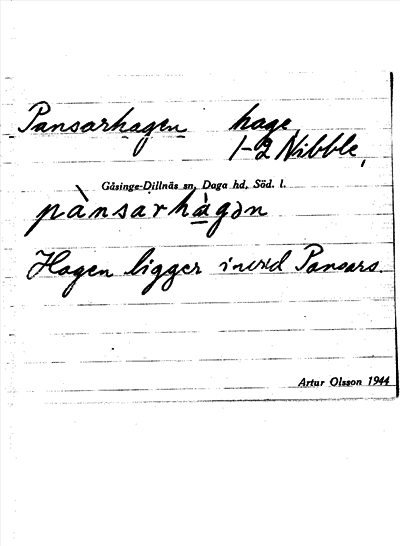 Pansarhagen hage,
1-2 Nibble,
Gåsinge-Dillnäs sn, Daga hd, Söd. l.
pànsarhàgən
Hagen ligger invid Pansars.
Artur Olsson 1944